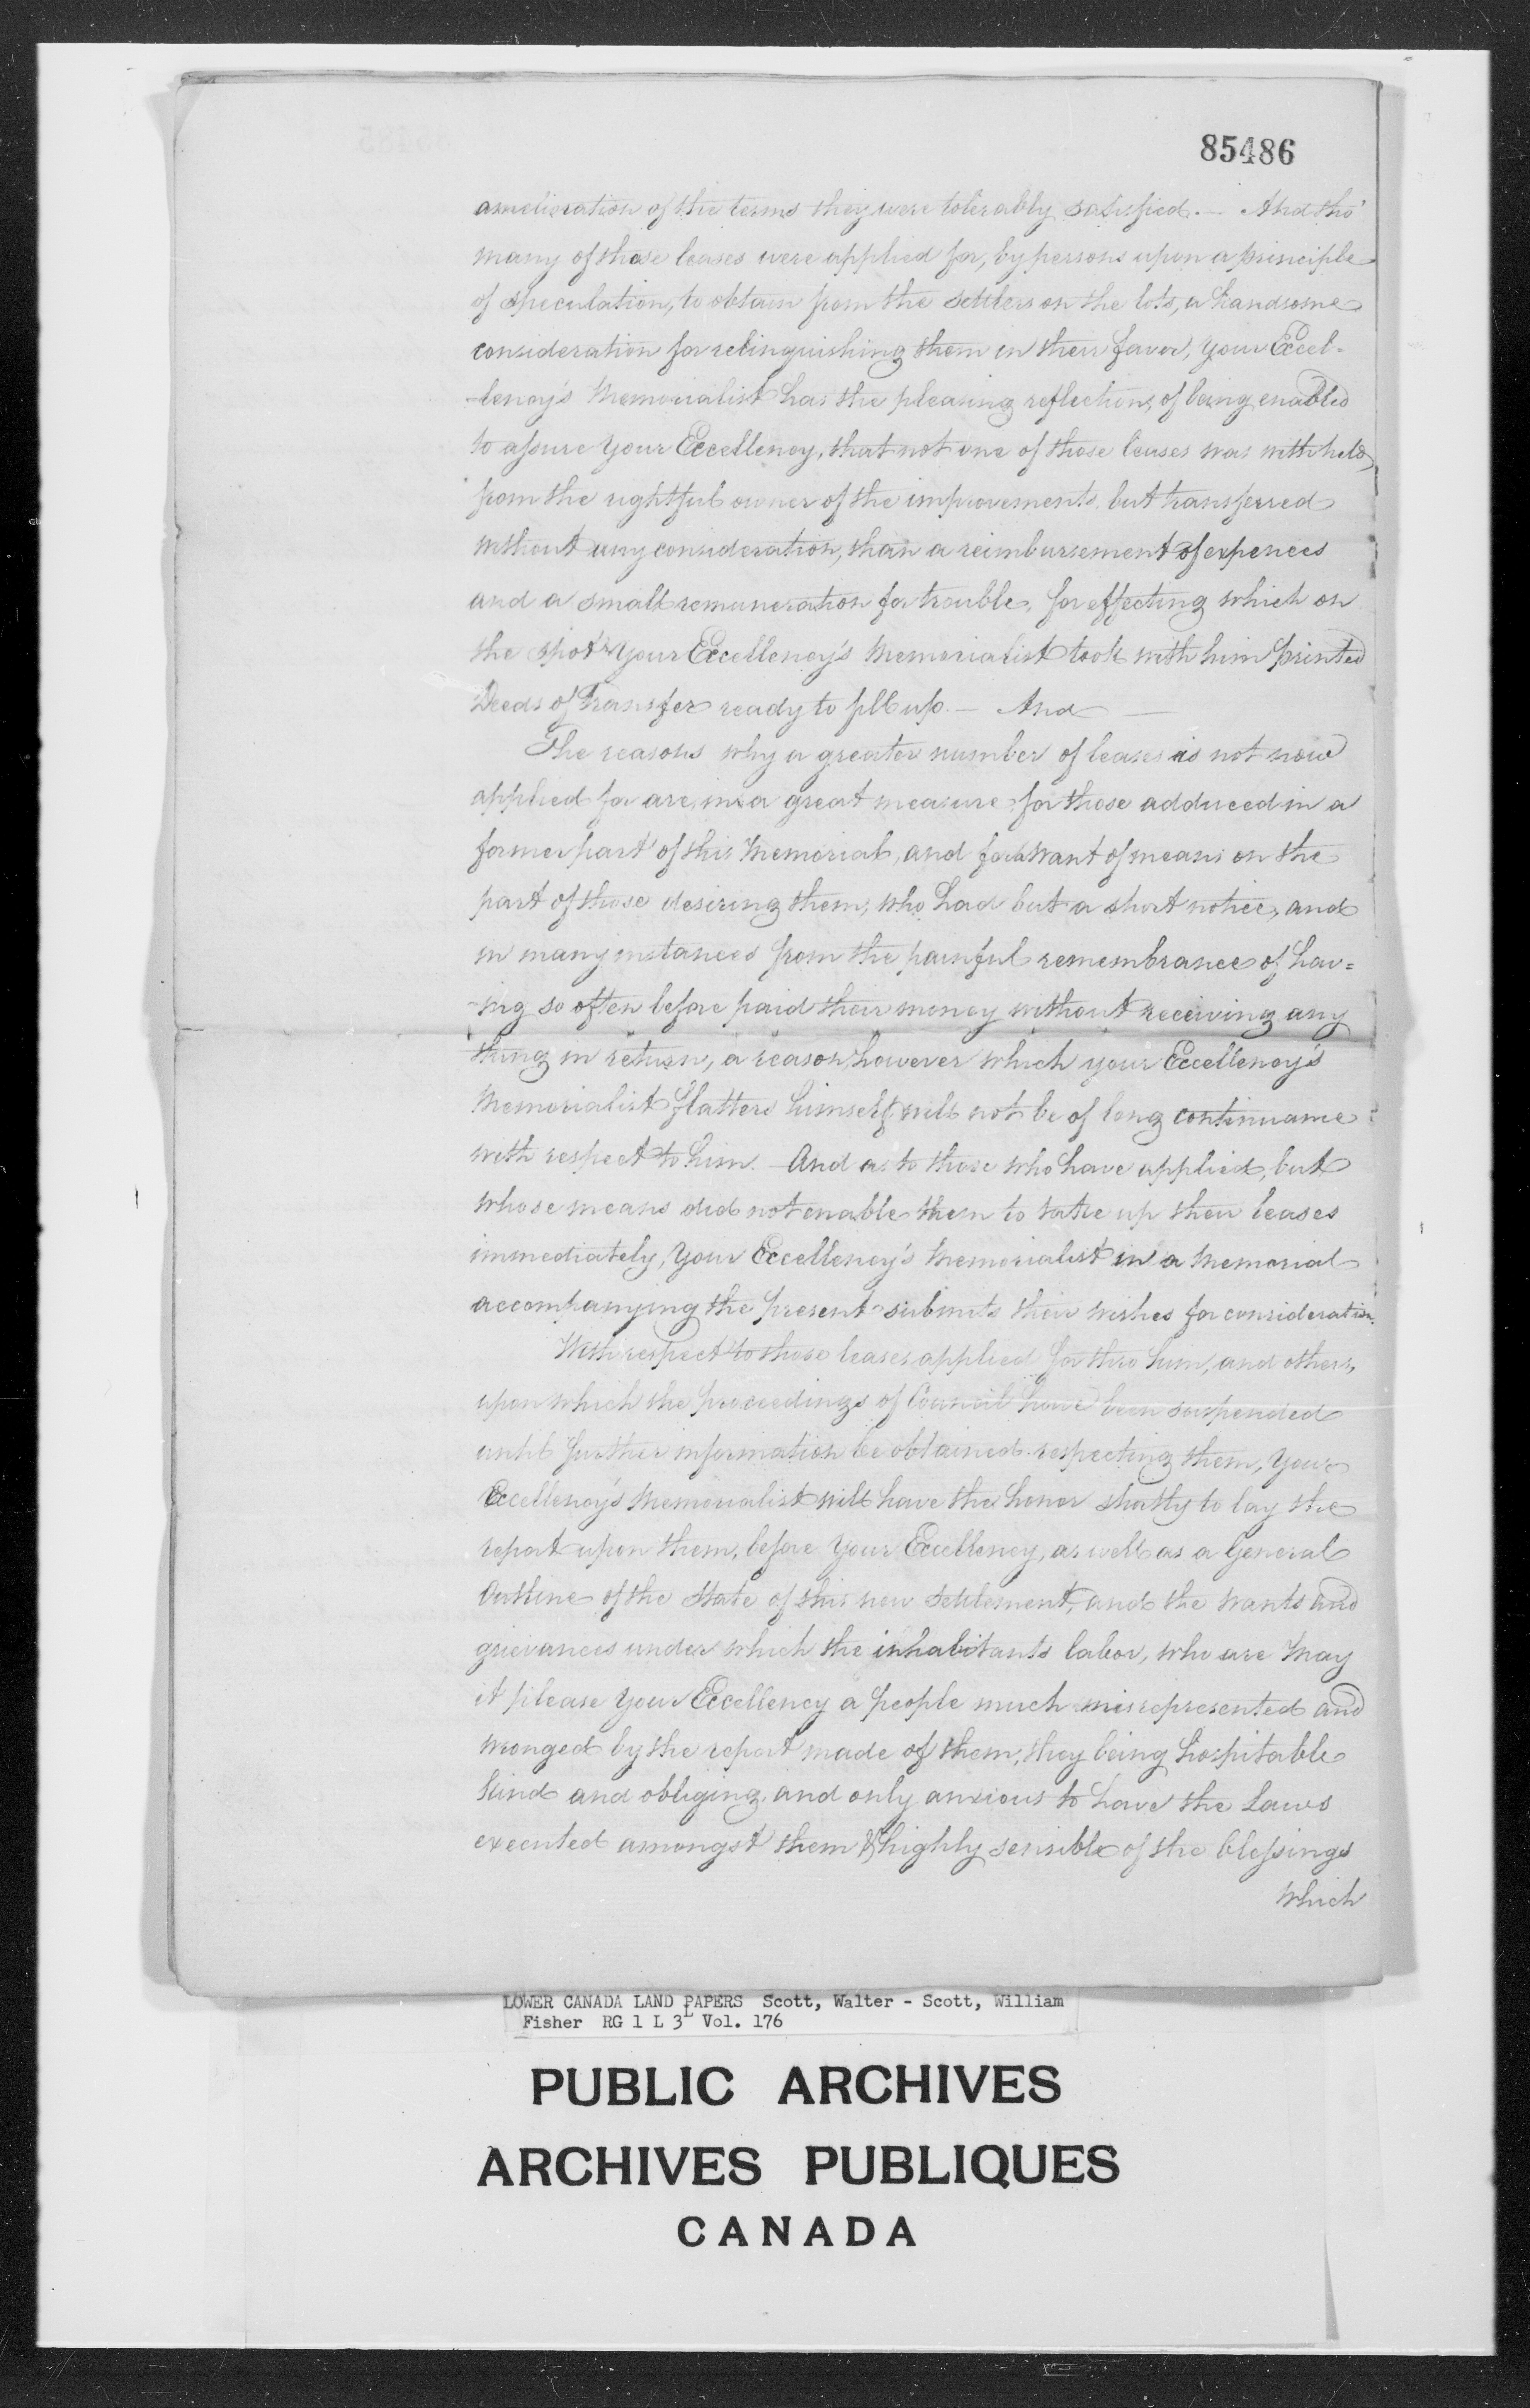 85486
amelioration of the terms they were tolerably satisfied. — And tho'
many of those leases were applied for, by persons upon a principle
of speculation, to obtain from the settlers on the lots, a handsome
consideration for relinquishing them in their favor, your Excel-
-lency's Memorialist has the pleasing reflection, of being enabled
to assure your Excellency, that not one of those leases was withheld,
from the rightful owner of the improvements, but transferred
without any consideration, than a reimbursement of expences
and a small remuneration for trouble, for effecting which on
the spot your Excellency's Memorialist took with him printed
Deeds of Transfer ready to fill up. — And —
The reasons why a greater number of leases is not now
applied for are, in a great measure for those adduced in a
former part of this Memorial, and for want of means on the
part of those desiring them, who had but a short notice, and
in many instances from the painful remembrance of hav=
-ing so often before paid their money without receiving any
thing in return, a reason, however which your Excellency's
Memorialist flatters himself will not be of long continuance
with respect to him. — And as to those who have applied, but
whose means did not enable them to take up their leases
immediately, your Excellency's Memorialist in a Memorial
accompanying the present submits their wishes for consideration.
With respect to those leases applied for thro him, and others,
upon which the proceedings of Council have been suspended
until further information be obtained respecting them, your
Excellency's Memorialist will have the honor shortly to lay the
report upon them, before your Excellency, as well as a General
Outline of the State of this new settlement, and the wants and
grievances under which the inhabitants labor, who are May
it please your Excellency a people much misrepresented and
wronged by the report made of them, they being hospitable
kind and obliging, and only anxious to have the Laws
executed amongst them & highly sensible of the blessings
which
LOWER CANADA LAND PAPERS Scott, Walter - Scott, William
Fisher RG 1 L 3 L Vol. 176
PUBLIC ARCHIVES
ARCHIVES PUBLIQUES
CANADA